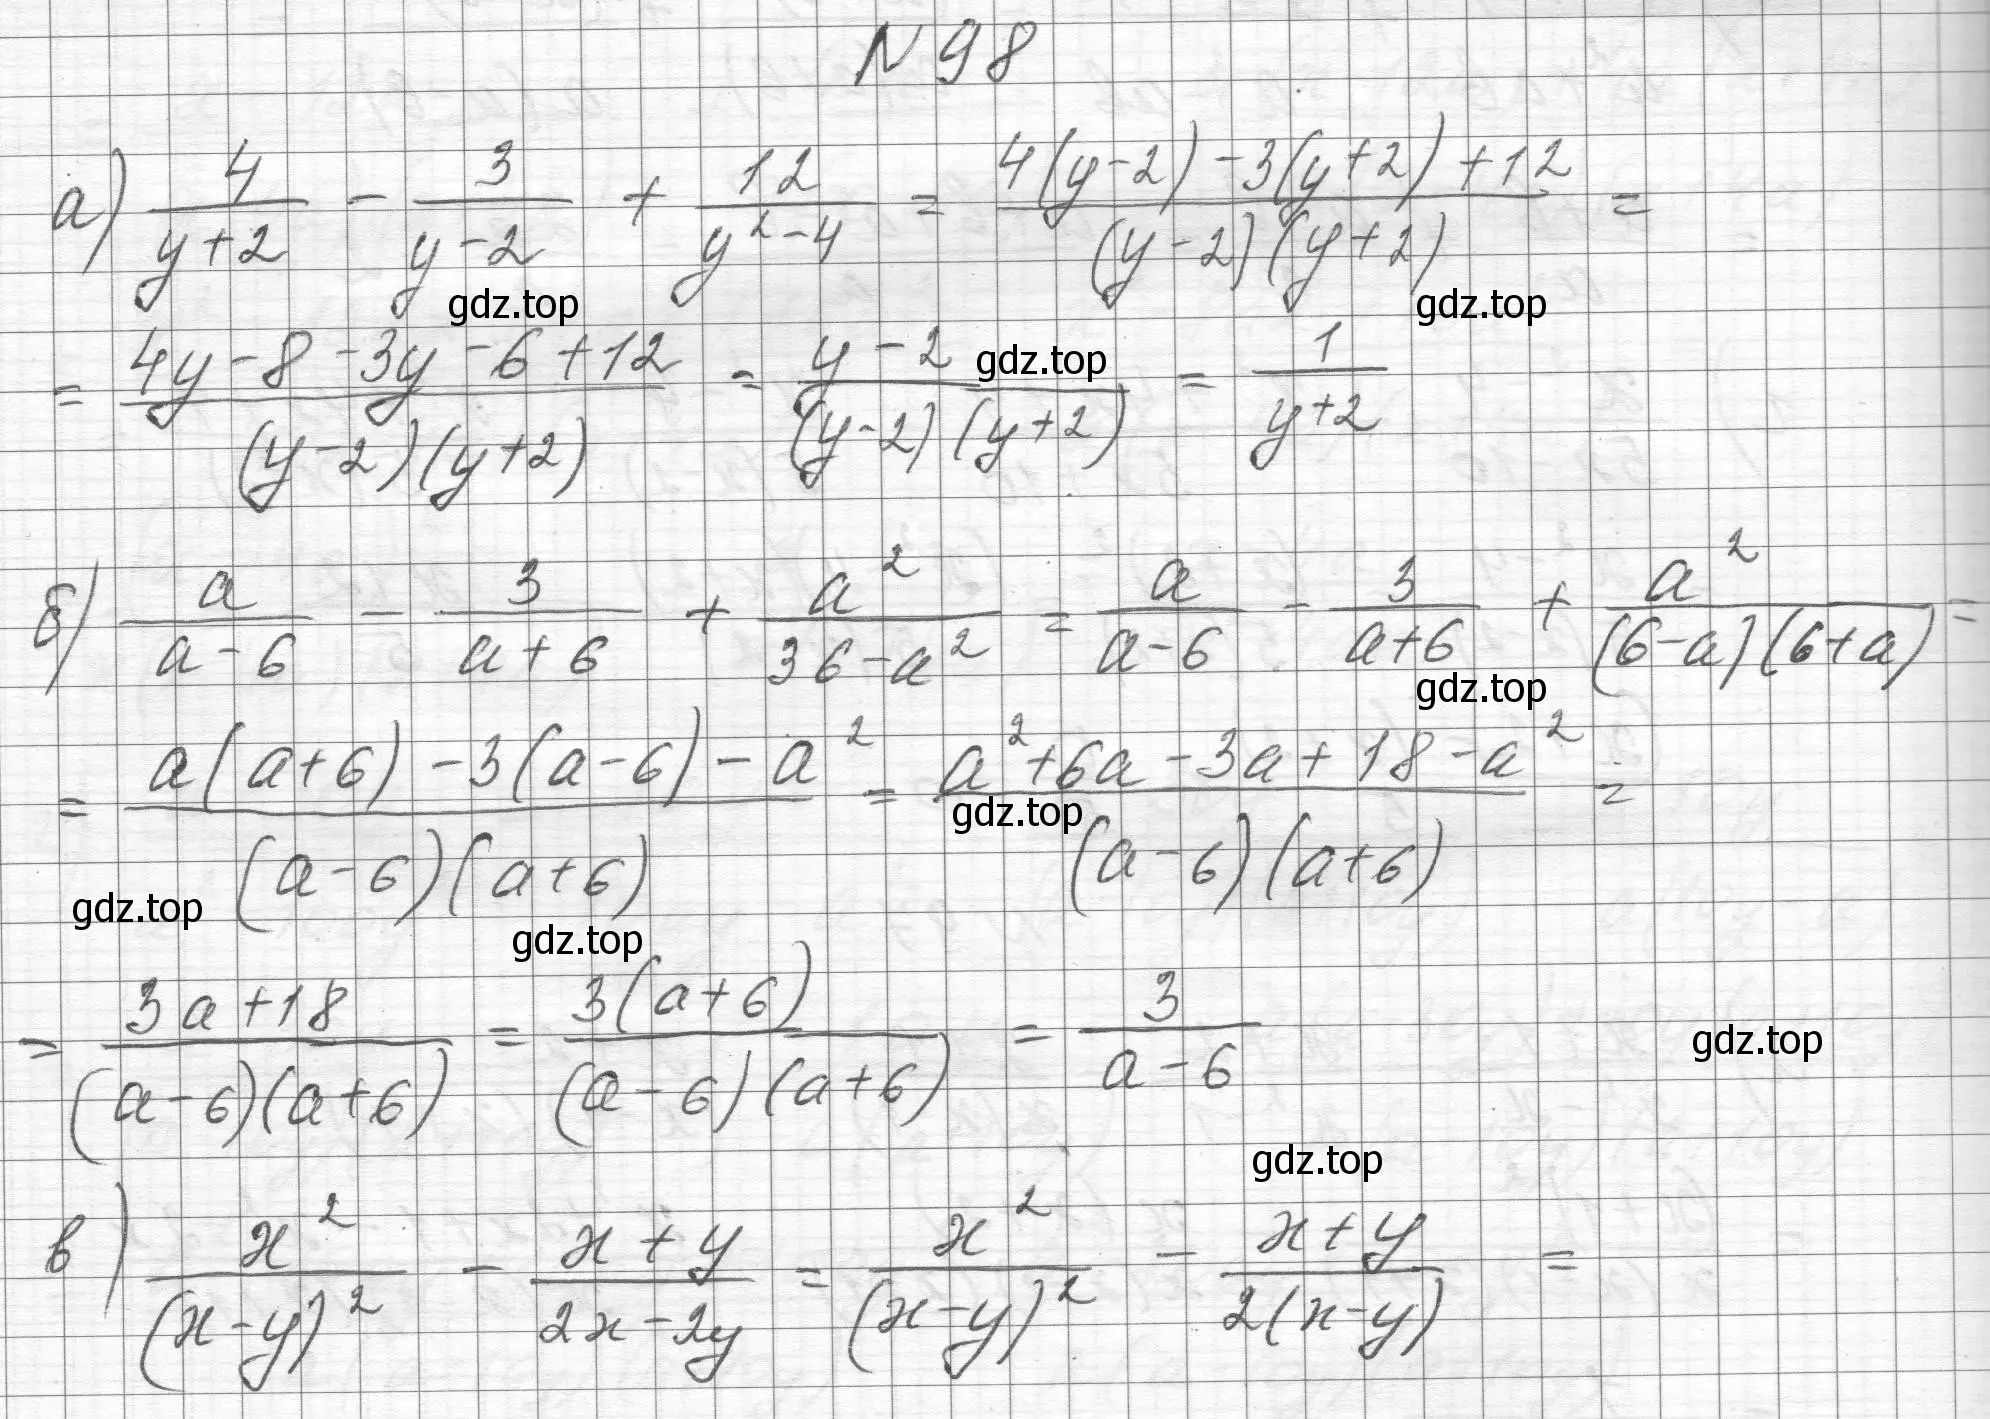 N 98
а) 4/(y+2) - 3/(y-2) + 12/(y²-4) = (4(y-2) -3(y+2) +12)/((y-2)(y+2)) =
gdz.top gdz.top
= (4y-8-3y-6+12)/((y-2)(y+2)) = (y-2)/((y-2)(y+2)) = 1/(y+2)
gdz.top
б) a/(a-6) - 3/(a+6) + a²/(36-a²) = a/(a-6) - 3/(a+6) + a²/((6-a)(6+a)) =
gdz.top
= (a(a+6) -3(a-6) - a²)/((a-6)(a+6)) = (a²+6a-3a+18-a²)/((a-6)(a+6)) =
gdz.top
gdz.top gdz.top
= (3a+18)/((a-6)(a+6)) = (3(a+6))/((a-6)(a+6)) = 3/(a-6)
gdz.top
gdz.top
в) x²/(x-y)² - (x+y)/(2x-2y) = x²/(x-y)² - (x+y)/(2(x-y)) =